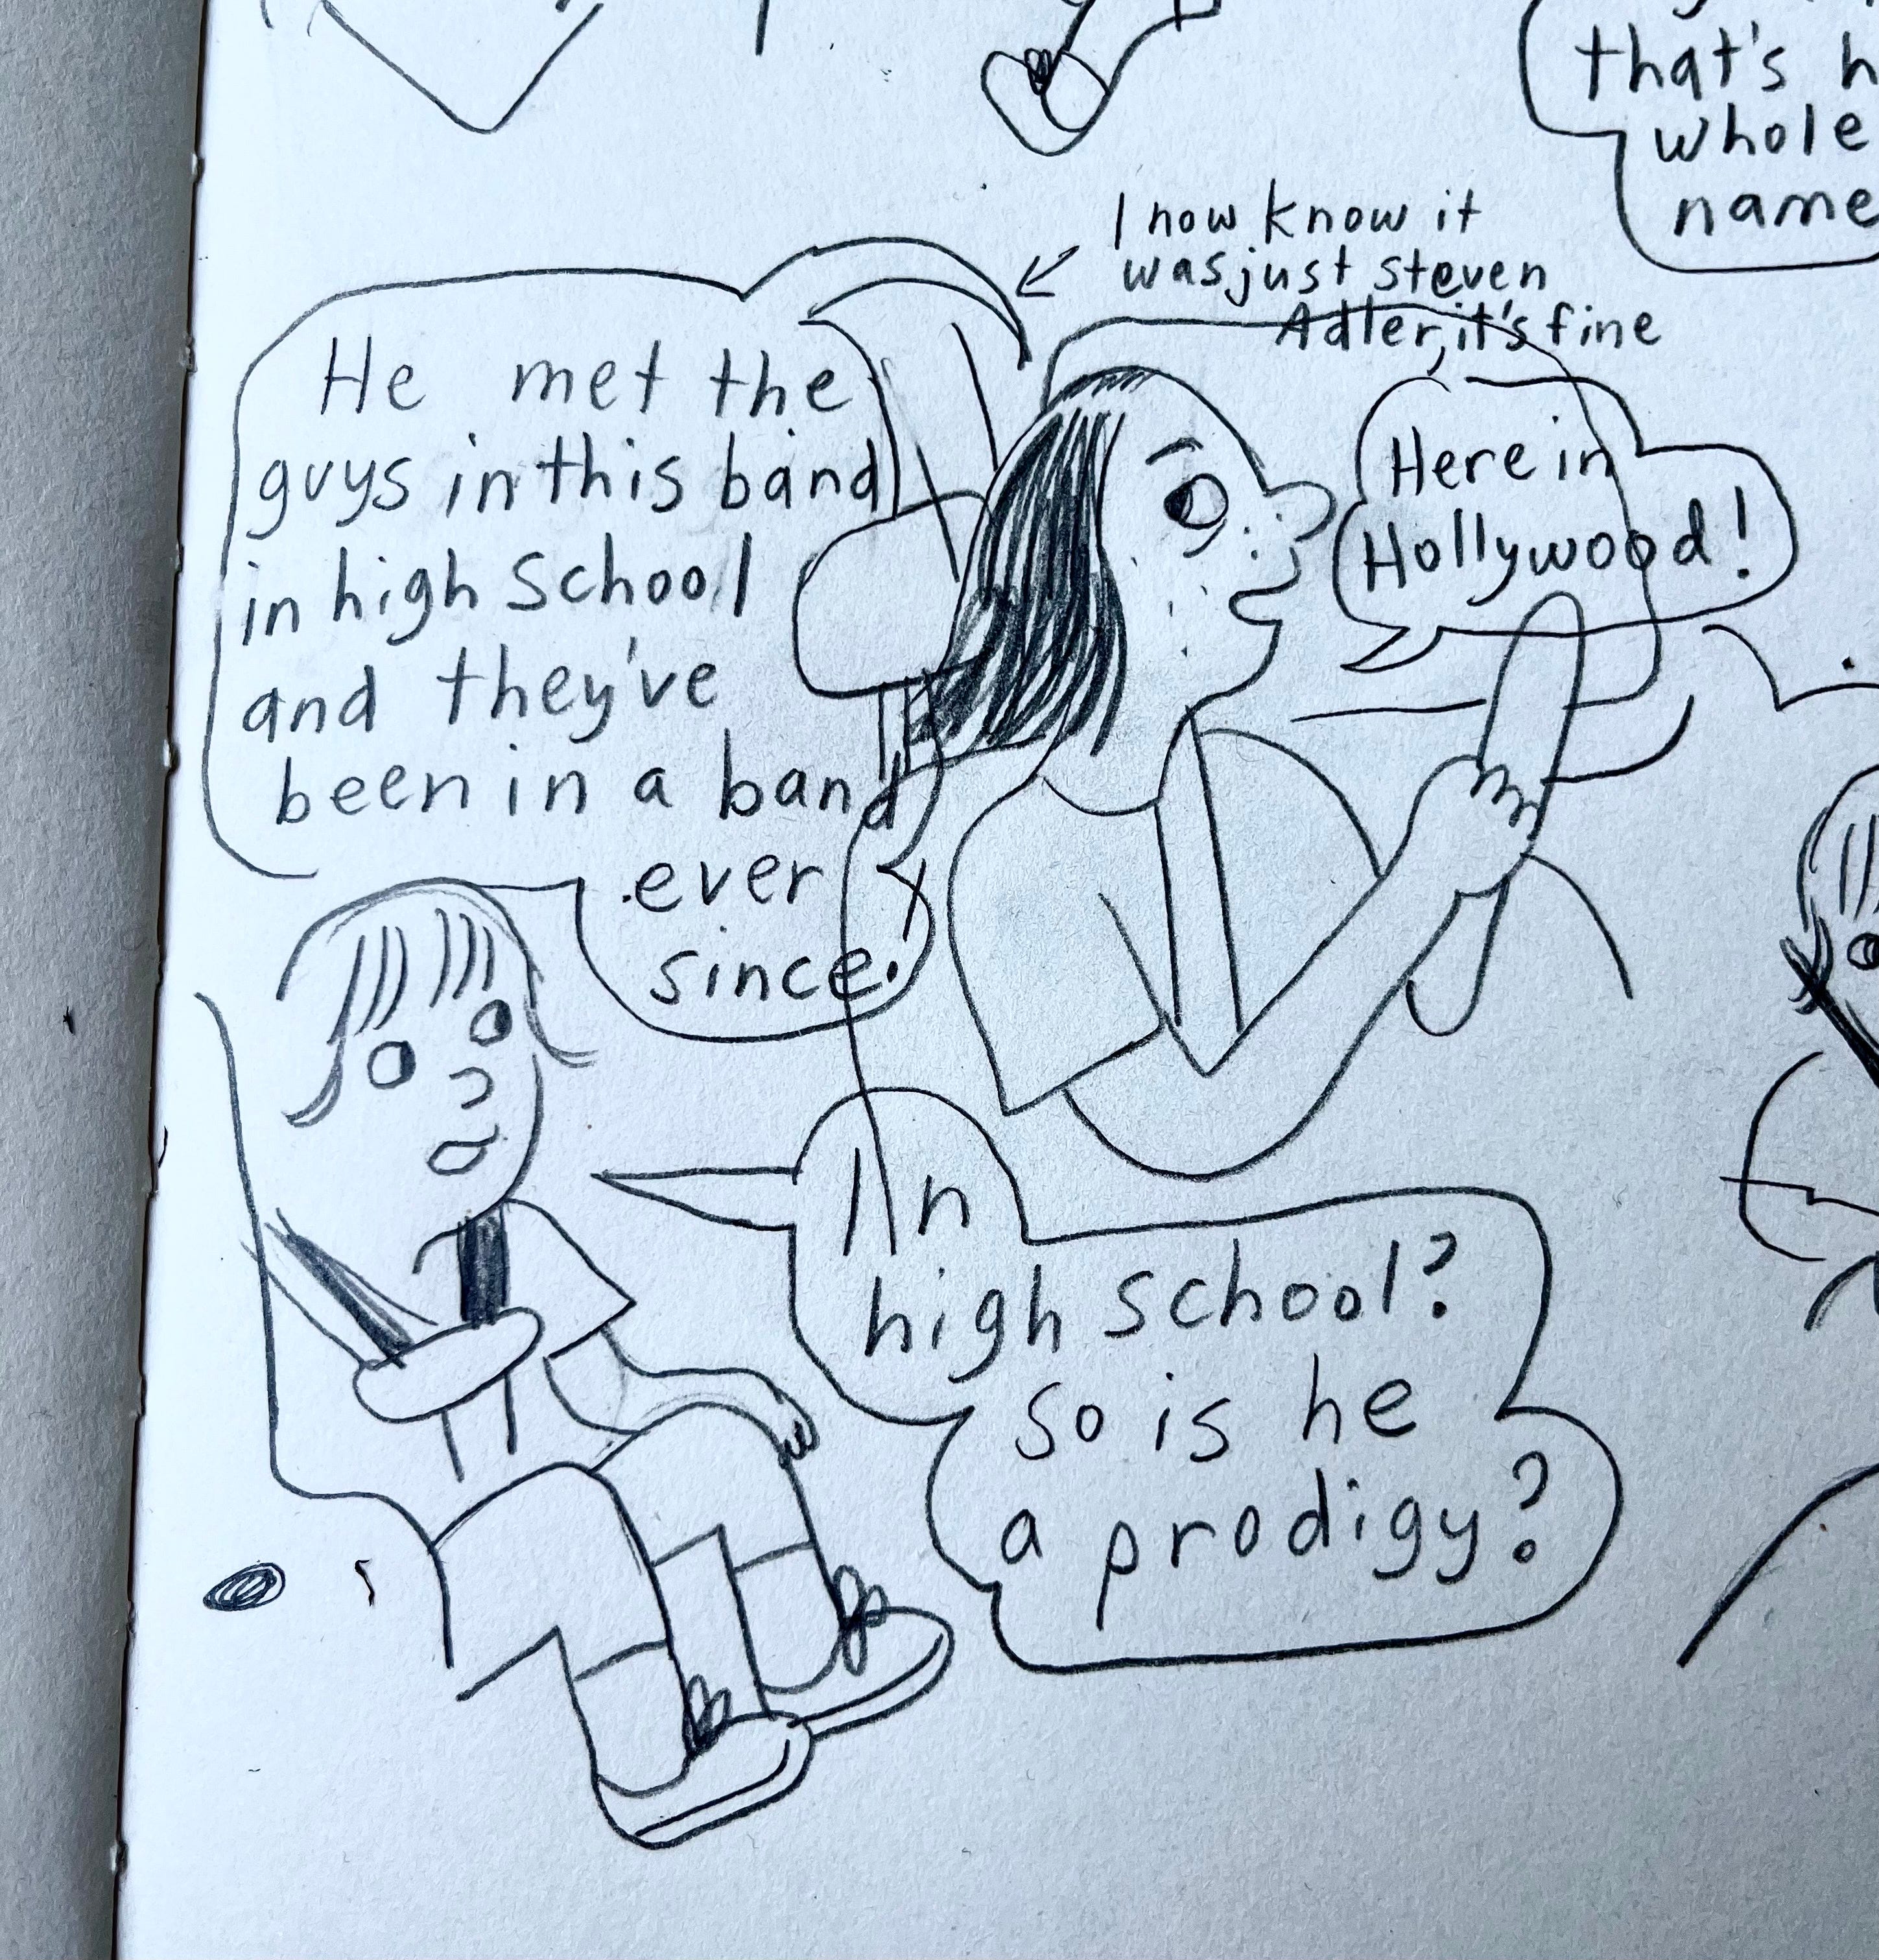 that's
whole
name
I now know it
was just steven
Adler, it's fine
He met the
guys in this band
in high school
and they've
been in a band
ever
since.
Here in
Hollywood!
In
high school?
so is he
a prodigy?